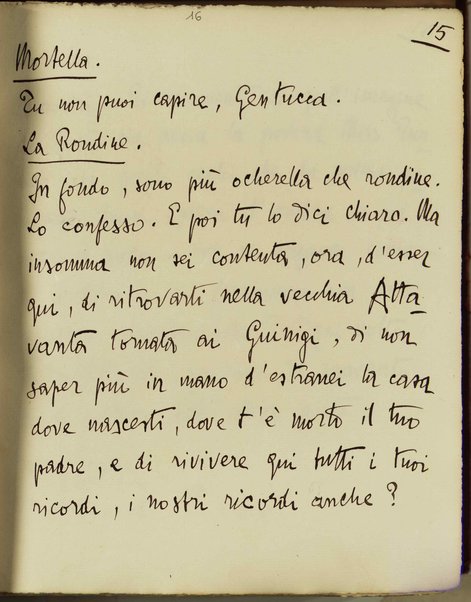 16
15
Mortella.
Tu non puoi capire, Gentucca.
La Rondine.
In fondo, sono più ocherella che rondine.
Lo confesso. E poi tu lo dici chiaro. Ma
insomma non sei contenta, ora, d'esser
qui, di ritrovarti nella vecchia Alta-
vanta tornata ai Guinigi, di non
saper più in mano d'estranei la casa
dove nascesti, dove t'è morto il tuo
padre, e di rivivere qui tutti i tuoi
ricordi, i nostri ricordi anche?